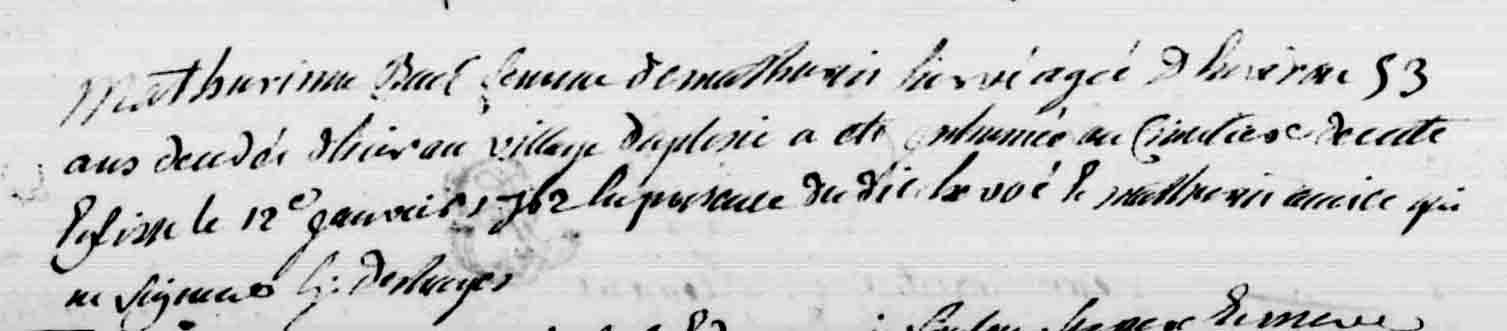 Mathurinne Bael femme de mathurin hervé agée d'hiviron 53
ans decedée d'hier au village duplesix a eté enhumée au Cimetiere de cette
Eglisse le 12e janveir 1762 En presence du dit hervoé Et mathurin amice qui
ne signent G: Deshayes